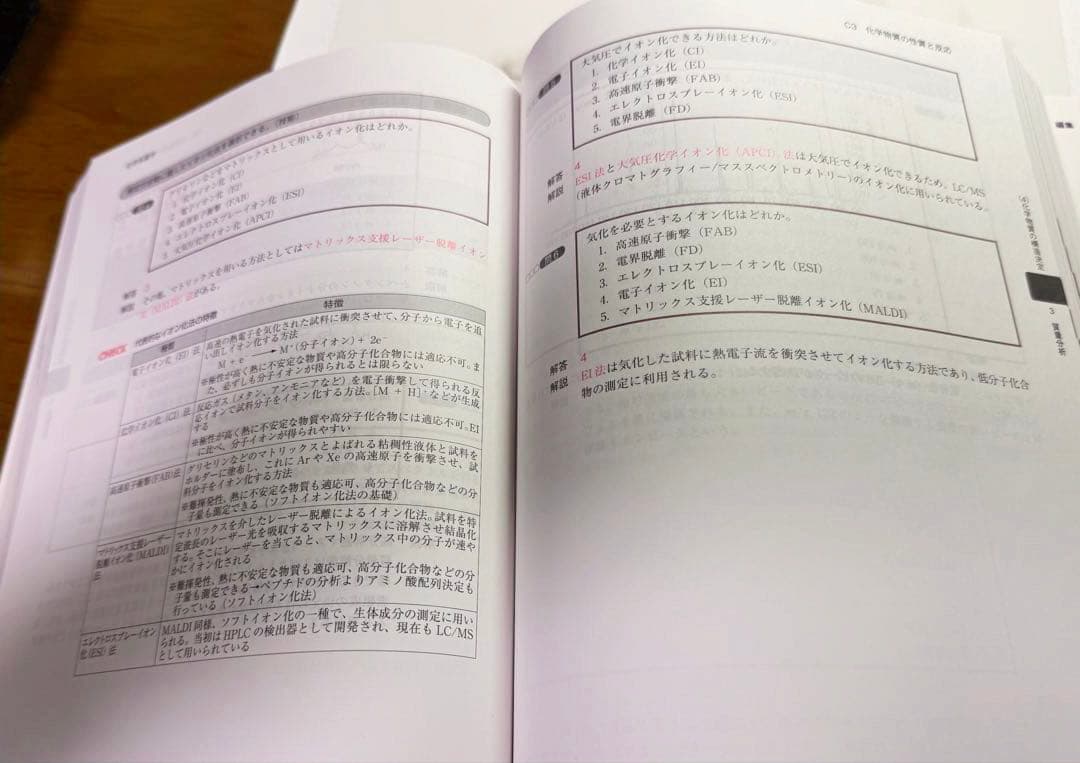 グリセリンなどをマトリックスとして用いるイオン化はどれか。
1 化学イオン化（CI）
2 電子イオン化（EI）
3 高速原子衝撃（FAB）
4 エレクトロスプレーイオン化（ESI）
5 大気圧化学イオン化（APCI）
解答 3
解説 その他、マトリックスを用いる方法としてはマトリックス支援レーザー脱離イオン
化（MALDI）法がある。
CHECK 代表的なイオン化法の特徴
種類 特徴
電子イオン化（EI）法
高速の熱電子を気化された試料に衝突させて、分子から電子を追
い出しイオン化する方法
M + e⁻ → M⁺（分子イオン）+ 2e⁻
※極性が高く熱に不安定な物質や高分子化合物には適応不可。ま
た、必ずしも分子イオンが得られるとは限らない
化学イオン化（CI）法
反応ガス（メタン、アンモニアなど）を電子衝撃して得られる反
応イオンで試料分子をイオン化する方法。[M + H]⁺などが生成
する
※極性が高く熱に不安定な物質や高分子化合物には適応不可。EI
に比べ、分子イオンが得られやすい
高速原子衝撃（FAB）法
グリセリンなどのマトリックスとよばれる粘稠性液体と試料を
ホルダーに塗布し、これに Ar や Xe の高速原子を衝撃させ、試
料分子をイオン化する方法
※難揮発性、熱に不安定な物質も適応可、高分子化合物などの分
子量も測定できる（ソフトイオン化法の基礎）
マトリックス支援レーザー
脱離イオン化（MALDI）
法
マトリックスを介したレーザー脱離によるイオン化法。試料を特
定波長のレーザー光を吸収するマトリックスに溶解させ結晶化
する。そこにレーザーを当てると、マトリックス中の分子が速や
かにイオン化される
※難揮発性、熱に不安定な物質も適応可、高分子化合物などの分
子量も測定できる→ペプチドの分析よりアミノ酸配列決定も
行っている（ソフトイオン化法）
エレクトロスプレーイオン
化（ESI）法
MALDI 同様、ソフトイオン化の一種で、生体成分の測定に用い
られる。当初は HPLC の検出器として開発され、現在も LC/MS
として用いられている
C3 化学物質の性質と反応
大気圧でイオン化できる方法はどれか。
1. 化学イオン化（CI）
2. 電子イオン化（EI）
3. 高速原子衝撃（FAB）
4. エレクトロスプレーイオン化（ESI）
5. 電界脱離（FD）
解答 4
解説 ESI 法と大気圧化学イオン化（APCI）法は大気圧でイオン化できるため、LC/MS
（液体クロマトグラフィー/マススペクトロメトリー）のイオン化に用いられている。
問6
気化を必要とするイオン化はどれか。
1. 高速原子衝撃（FAB）
2. 電界脱離（FD）
3. エレクトロスプレーイオン化（ESI）
4. 電子イオン化（EI）
5. マトリックス支援レーザー脱離イオン化（MALDI）
解答 4
解説 EI 法は気化した試料に熱電子流を衝突させてイオン化する方法であり、低分子化合
物の測定に利用される。
(4)化学物質の構造決定
3 質量分析
編集